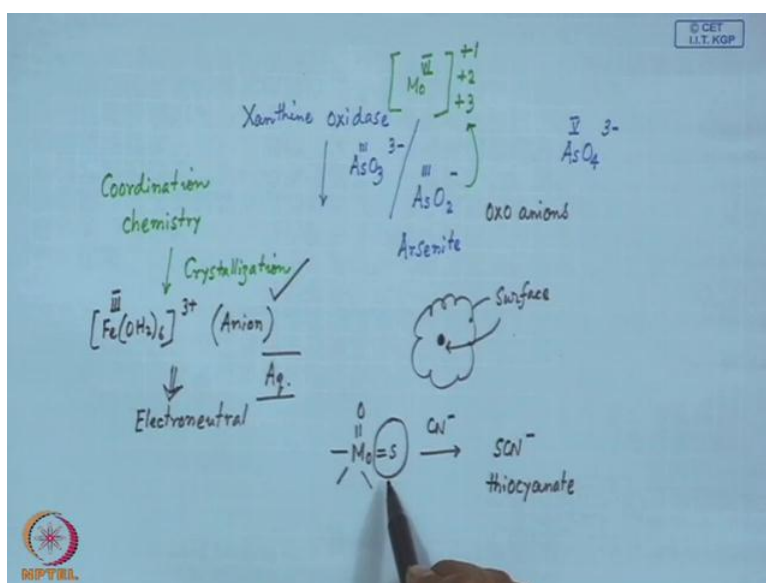 © CET
I.I.T. KGP
[Mo^VI]^+1 +2 +3
Xanthine oxidase
III AsO3^3-
III AsO2^-
V AsO4^3-
Oxo anions
Arsenite
Coordination
chemistry
Crystallization
[Fe^III(OH2)6]^3+ (Anion)
Aq.
Electroneutral
Surface
O
Mo=S CN^- → SCN^-
thiocyanate
NPTEL